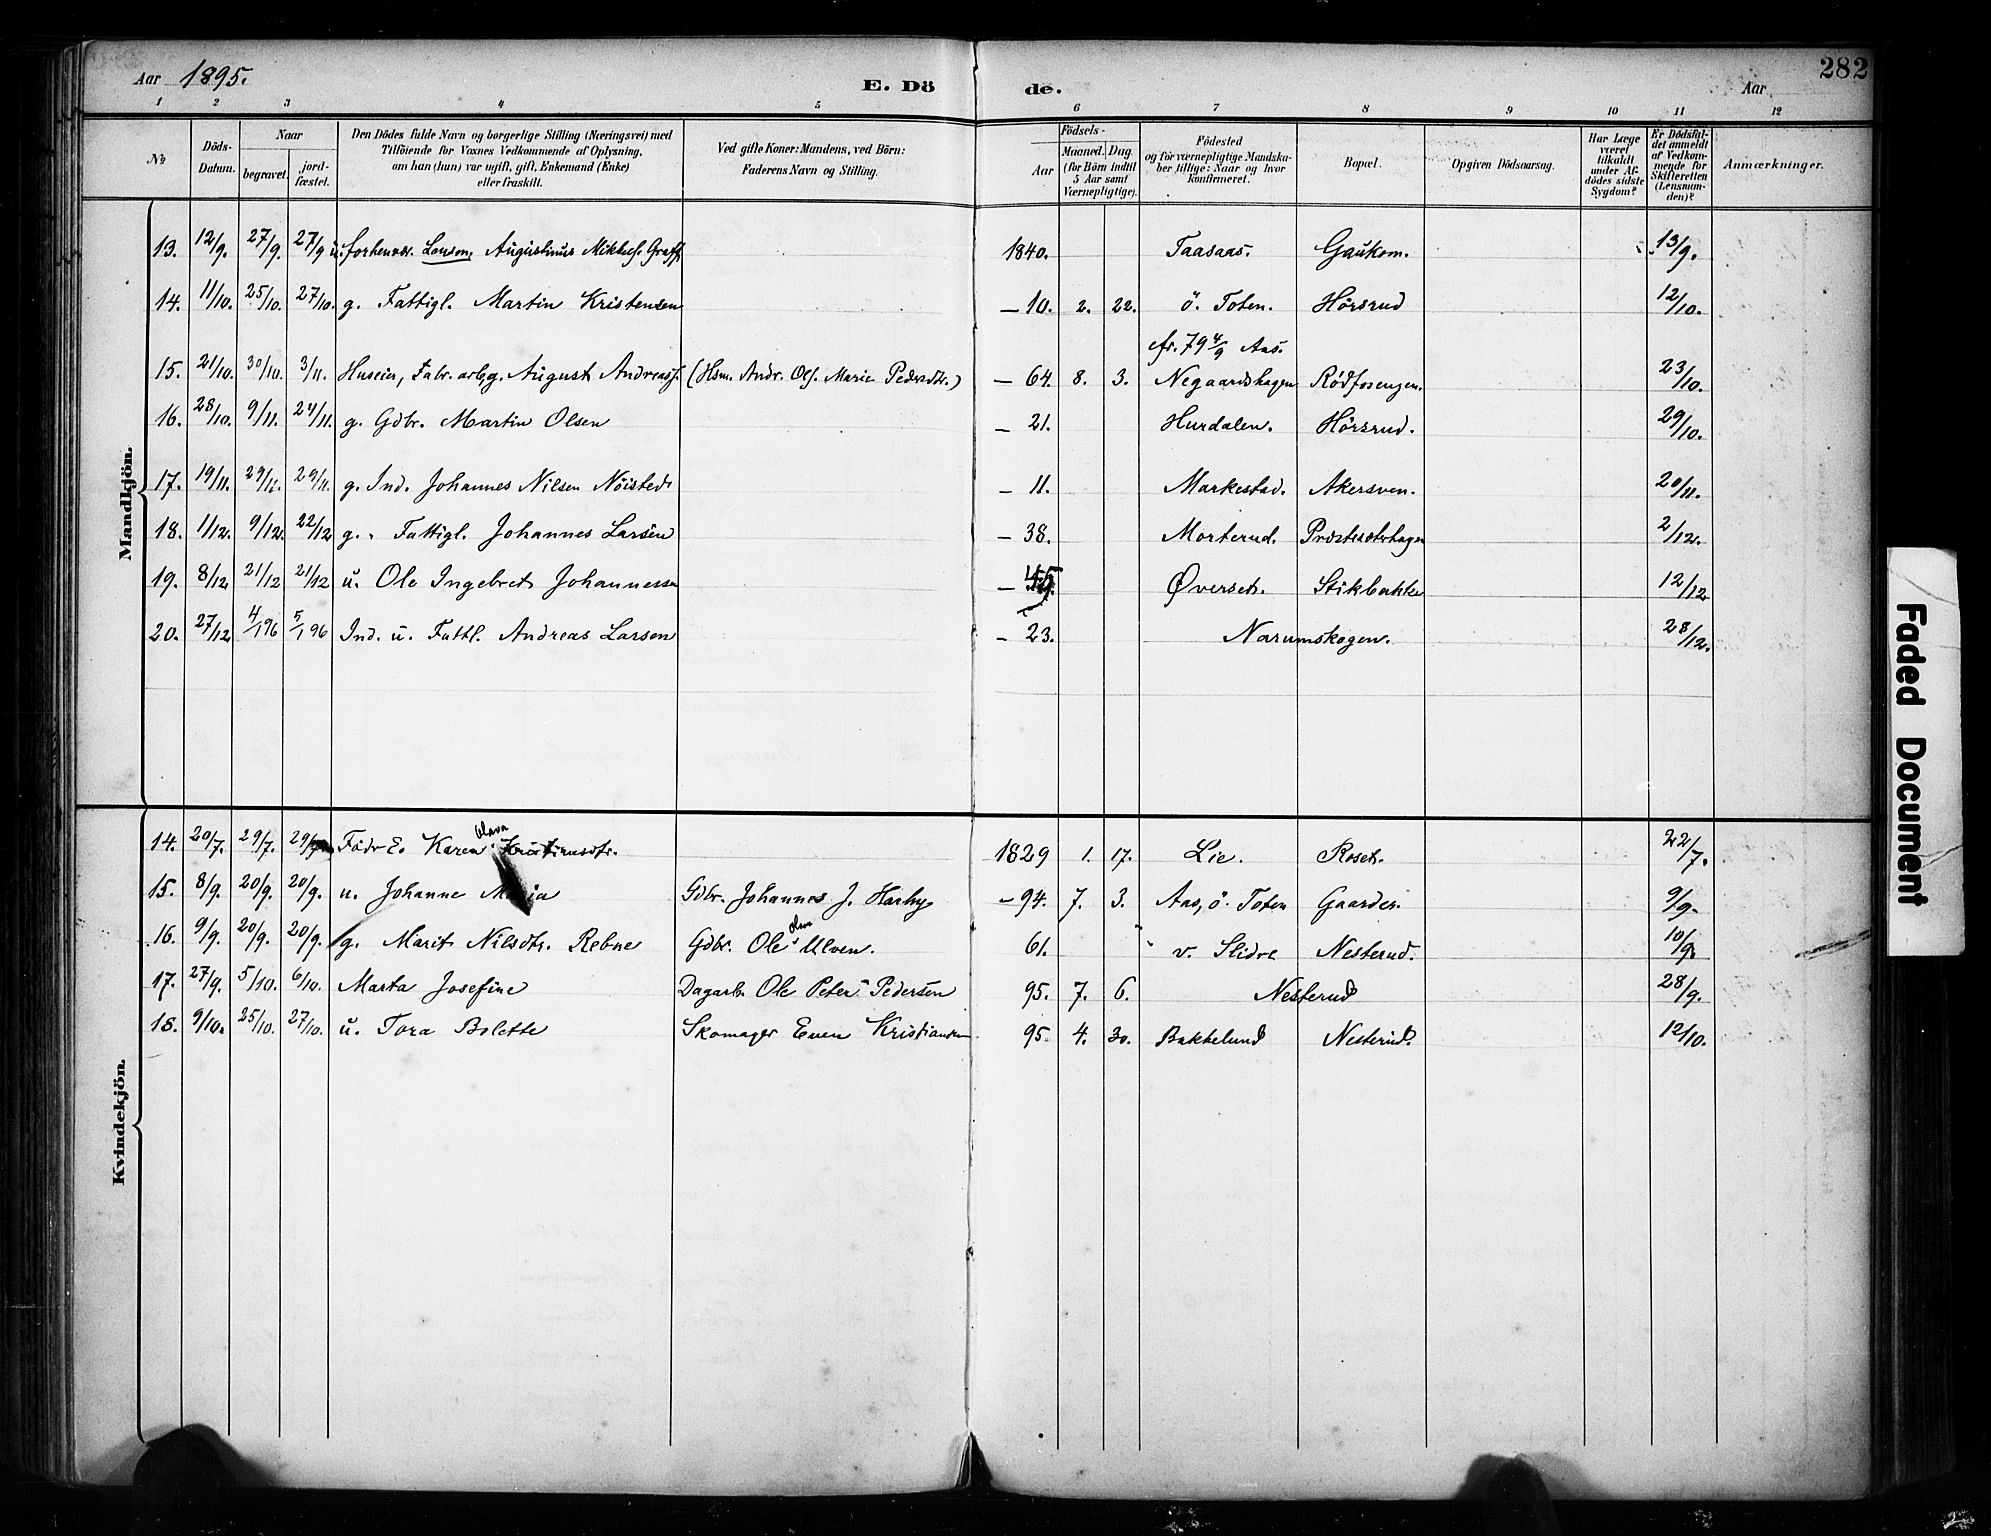 Aar 1895. E. Dö de. Aar 282
1 2 3 4 5 6 7 8 9 10 11 12
№
Döds-Datum.
Naar
begravet.
jord-fæstet.
Den Dödes fulde Navn og borgerlige Stilling (Næringsvei) med
Tilföiende for Voxnes Vedkommende af Oplysning,
om han (hun) var ugift, gift, Enkemand (Enke)
eller fraskilt.
Ved gifte Koner: Mandens, ved Börn:
Faderens Navn og Stilling.
Födsels-
Aar
Maaned. Dag.
(for Börn indtil
5 Aar samt
Værnepligtige).
Födested
og for værnepligtige Mandska-
ber tillige: Naar og hvor
konfirmeret.
Bopæl.
Opgiven Dödsaarsag.
Har Læge
været
tilkaldt
under Af-
dödes sidste
Sygdom?
Er Dödsfal-
det anmeldt
af Vedkom-
mende for
Skifteretten
(Lensman-
den)?
Anmærkninger.
Mandkjön.
13. 12/9. 27/9. 27/9 u. forhenvær. Augustinus Mikkels. Graff 1840. Taasaas. Gaukom. 13/9.
14. 11/10. 25/10. 27/10. g. Fattigl. Martin Kristensen – 10. 2. 22. ö. Toten. Hörsrud 12/10.
cfr. 79 4/9 Aas.
15. 21/10. 30/10. 3/11. Huseier, Fabr. arb. g. August Andreass. (Hsm. Andr. Ols. Marie Pedersdtr.) – 64. 8. 3. Negaardshagen Rödfosengen. 23/10.
16. 28/10. 9/11. 24/11. g. Gdbr. Martin Olsen – 21. Hurdalen. Hörsrud. 29/10.
17. 19/11. 29/11. 29/11. g. Ind. Johannes Nilsen Nöisted – 11. Markestad. Akersven. 20/11.
18. 11/12. 9/12. 22/12 g. Fattigl. Johannes Larsen – 38. Morterud. Præstesæterhagen 2/12.
19. 8/12 21/12 21/12 u. Ole Ingebret Johannessen – Øverset. Stikbakke 12/12
20. 27/12 4/1 96 5/1 96 Ind. u. Fattl. Andreas Larsen – 23. Narumskogen. 28/12.
Kvindekjön.
Olava
14. 20/7. 29/7. 29/7 Födr. E. Karen Kristiansdtr. 1829 1. 17. Lie. Roset. 22/7.
15. 8/9. 20/9. 20/9. u. Johanne Maria Gdbr. Johannes J. Harby – 94. 7. 3. Aas, ö. Toten Gaarder. 9/9.
16. 9/9. 20/9. 20/9. g. Marit Nilsdtr. Rebne Gdbr. Ole Ulven. 61. v. Slidre Nesterud. 10/9
17. 27/9. 5/10. 6/10. Marta Josefine Dagarb. Ole Peter Pedersen 95. 7. 6. Nesterud 28/9.
18. 9/10. 25/10. 27/10. u. Tora Bolette Skomager Even Kristiansen 95. 4. 30. Bakkelund Nesterud. 12/10.
Faded Document